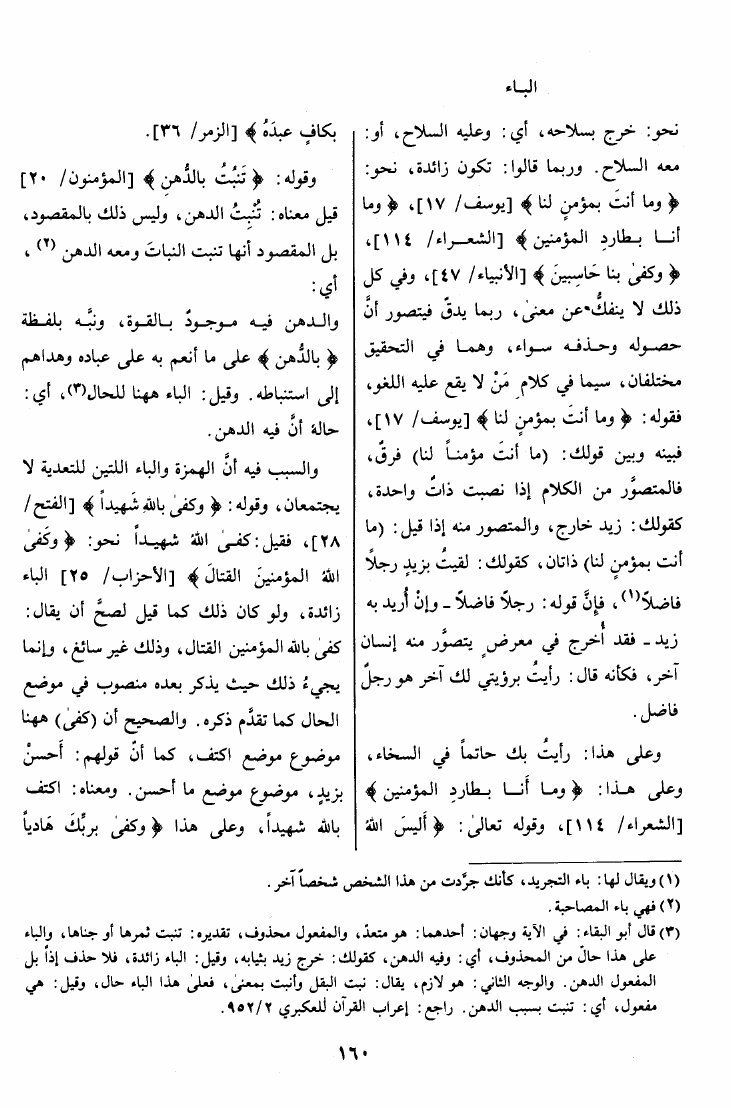 الباء
نحو: خرج بسلاحه، أي: وعليه السلاح، أو:
معه السلاح. وربما قالوا: تكون زائدة، نحو:
﴿ وما أنتَ بمؤمنٍ لنا ﴾ [يوسف/ ١٧]، ﴿ وما
أنــا بـطاردِ المؤمنين ﴾ [الشعـراء/ ١١٤]،
﴿ وكفىٰ بنا حَاسِبينَ ﴾ [الأنبياء/ ٤٧]، وفي كل
ذلك لا ينفكُّ عن معنىٰ، ربما يدقّ فيتصور أنَّ
حصـوله وحـذفـه سـواء، وهمـا في التحقيق
مختلفان، سيما في كلام مَنْ لا يقع عليه اللغو،
فقوله: ﴿ وما أنتَ بمؤمنٍ لنا ﴾ [يوسف/ ١٧]،
فبينه وبين قولك: (ما أنتَ مؤمنـاً لنا) فرقٌ،
فالمتصوَّر من الكلام إذا نصبت ذاتٌ واحدة،
كقولك: زيد خارج، والمتصور منه إذا قيل: (ما
أنت بمؤمنٍ لنا) ذاتان، كقولك: لقيتُ بزيدٍ رجلاً
فاضلاً(١)، فإنَّ قوله: رجلاً فاضلاً ـ وإنْ أُريد به
زيد ـ فقد أُخرج في معرضٍ يتصوَّر منه إنسان
آخر، فكأنه قال: رأيتُ برؤيتي لك آخر هو رجلٌ
فاضل.
وعلى هذا: رأيتُ بك حاتماً في السخاء،
وعلى هـذا: ﴿ ومـا أَنــا بـطاردِ المؤمنين ﴾
[الشعراء/ ١١٤]، وقوله تعالىٰ: ﴿ أَليسَ اللهُ
بكافٍ عبدَهُ ﴾ [الزمر/ ٣٦].
وقوله: ﴿ تَنبُتُ بالدُّهنِ ﴾ [المؤمنون/ ٢٠]
قيل معناه: تُنبِتُ الدهن، وليس ذلك بالمقصود،
بل المقصود أنها تنبت النباتَ ومعه الدهن (٢)،
أي:
والـدهن فيـه مـوجـودٌ بـالقـوة، ونبَّـه بلفـظة
﴿ بالدُّهن ﴾ على ما أنعم به على عباده وهداهم
إلى استنباطه. وقيل: الباء ههنا للحال(٣)، أي:
حالهُ أنَّ فيه الدهن.
والسبب فيه أنَّ الهمزة والباء اللتين للتعدية لا
يجتمعان، وقوله: ﴿ وكفىٰ باللهِ شَهيداً ﴾ [الفتح/
٢٨]، فقيل: كفـىٰ اللهُ شهيـداً نحو: ﴿ وكَفىٰ
اللهُ المؤمنينَ القتالَ ﴾ [الأحزاب/ ٢٥] الباء
زائدة، ولو كان ذلك كما قيل لصحَّ أن يقال:
كفىٰ بالله المؤمنين القتال، وذلك غير سائغ، وإنما
يجيءُ ذلك حيث يذكر بعده منصوب في موضع
الحال كما تقدَّم ذكره. والصحيح أن (كفىٰ) ههنا
موضوع موضع اكتف، كما أنّ قولهم: أَحسنْ
بزيدٍ، موضوع موضع ما أحسن. ومعناه: اكتف
بالله شهيداً، وعلى هذا ﴿ وكفىٰ بربِّكَ هَادياً
(١) ويقال لها: باء التجريد، كأنك جرَّدت من هذا الشخص شخصاً آخر.
(٢) فهي باء المصاحبة.
(٣) قال أبو البقاء: في الآية وجهان: أحدهما: هو متعدّ، والمفعول محذوف، تقديره: تنبت ثمرها أو جناها، والباء
على هذا حالٌ من المحذوف، أي: وفيه الدهن، كقولك: خرج زيد بثيابه، وقيل: الباء زائدة، فلا حذف إذاً بل
المفعول الدهن. والوجه الثاني: هو لازم، يقال: نبت البقل وأنبت بمعنىً، فعلىٰ هذا الباء حال، وقيل: هي
مفعول، أي: تنبت بسبب الدهن. راجع: إعراب القرآن للعكبري ٩٥٢/٢.
١٦٠